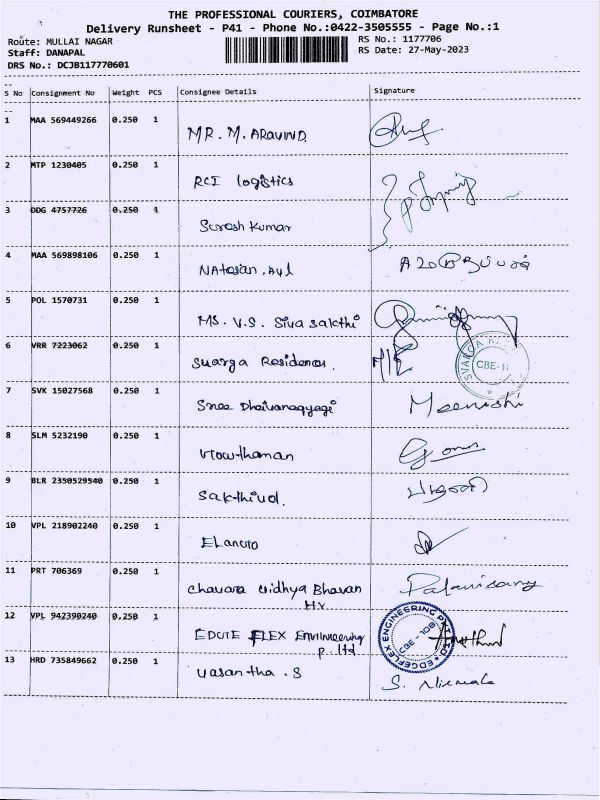 THE PROFESSIONAL COURIERS, COIMBATORE
Delivery Runsheet - P41 - Phone No.:0422-3505555 - Page No.:1
Route: MULLAI NAGAR
RS No.: 1177706
Staff: DANAPAL
RS Date: 27-May-2023
DRS No.: DCJB117770601
S No Consignment No Weight PCS Consignee Details Signature
1 MAA 569449266 0.250 1 MR. M. ARAVIND
2 MTP 1230405 0.250 1 RCI logistics
3 DDG 4757726 0.250 1 Suresh Kumar
4 MAA 569898106 0.250 1 Natesan
5 POL 1570731 0.250 1 MS. V.S. Siva sakthi
6 VRR 7223062 0.250 1 Suarga Residences
SVARGA
CBE-11
7 SVK 15027568 0.250 1 Sree Meenishi
8 SLM 5232190 0.250 1 Vtowthaman
9 BLR 2350529540 0.250 1 Sakthivel
10 VPL 218902240 0.250 1
11 PRT 706369 0.250 1 Chavara Vidhya Bhavan Palanisamy
12 VPL 942390240 0.250 1 FLEX Engineering
P. ltd
EDGEFLEX ENGINEERING PVT LTD
CBE-108
13 HRD 735849662 0.250 1 Vasantha . S S. Nirmala